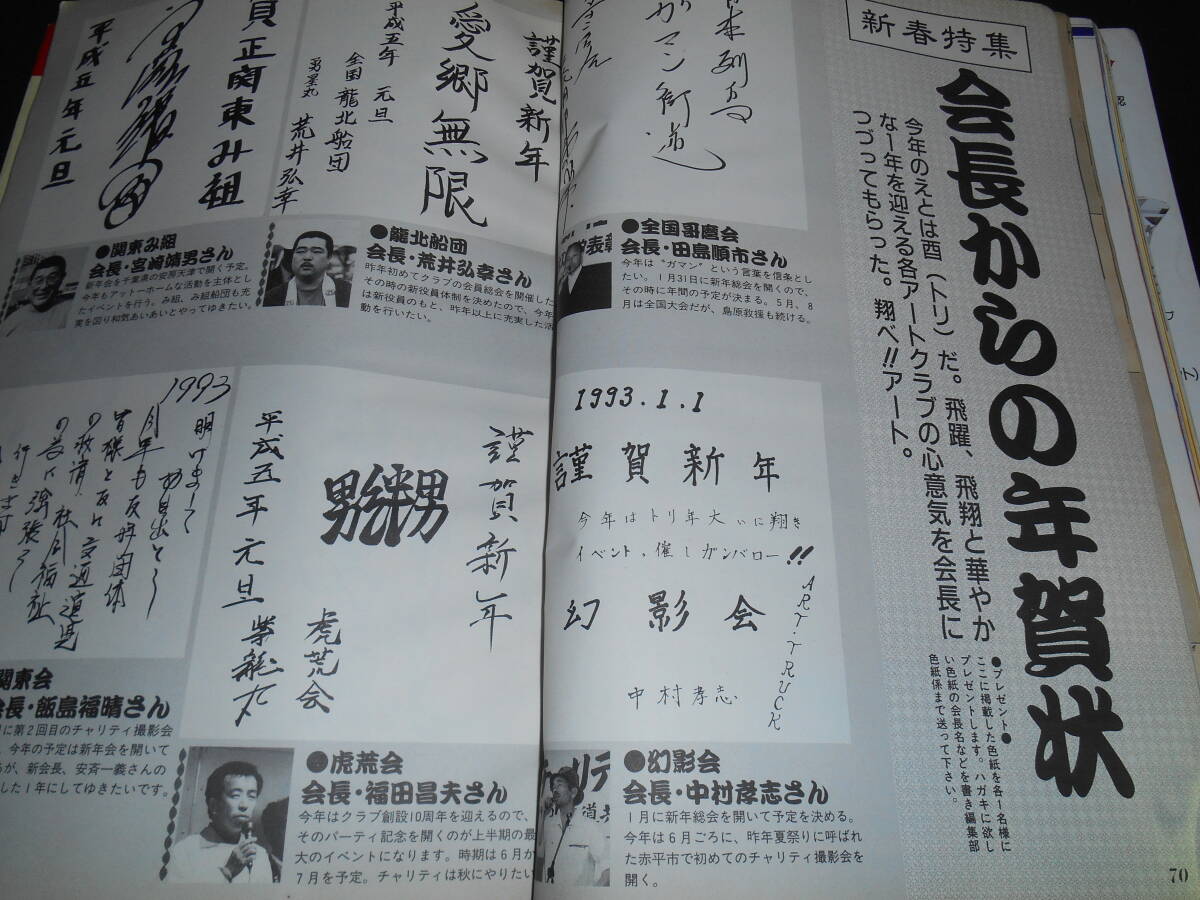 新春特集
会長からの年賀状
今年のえとは酉（トリ）だ。飛躍、飛翔と華やか
な1年を迎える各アートクラブの心意気を会長に
つづってもらった。翔べ!!アート。
●プレゼント●
ここに掲載した色紙を各1名様に
プレゼントします。ハガキに欲し
い色紙の会長名などを書き編集部
色紙係まで送って下さい。
ガマン街道
●全国哥麿会
会長・田島順市さん
今年は“ガマン”という言葉を信条とし
たい。1月31日に新年総会を開くので、
その時に年間の予定が決まる。5月、8
月は全国大会だが、島原救援も続ける。
謹賀新年
愛郷無限
平成五年 元旦
全国龍北船団
荒井弘幸
●龍北船団
会長・荒井弘幸さん
昨年初めてクラブの会員総会を開催した
その時の新役員体制を決めたので、今年
は新役員のもと、昨年以上に充実した活
動を行いたい。
賀正関東み組
平成五年元旦
●関東み組
会長・宮崎靖男さん
新年会を千葉県の安房天津で開く予定。
今年もアットホームな活動を主体とし
たイベントを行う。み組、み組船団も充
実を図り和気あいあいとやってゆきたい。
1993.1.1
謹賀新年
今年はトリ年大いに翔き
イベント、催しガンバロー!!
幻影会
ART.TRUCK
中村孝志
●幻影会
会長・中村孝志さん
1月に新年総会を開いて予定を決める。
今年は6月ごろに、昨年夏祭りに呼ばれ
た赤平市で初めてのチャリティ撮影会を
開く。
謹賀新年
平成五年元旦
虎荒会
●虎荒会
会長・福田昌夫さん
今年はクラブ創設10周年を迎えるので、
そのパーティ記念を開くのが上半期の最
大のイベントになります。時期は6月か
7月を予定。チャリティは秋にやりたい
1993
明けまして
お目出とう
今年も友好団体
皆様と共に交通道児
の救済、社会福祉
の為に頑張る
関東会
会長・飯島福晴さん
に第2回目のチャリティ撮影会
今年の予定は新年会を開いて
が、新会長、安斉一義さんの
した1年にしてゆきたいです。
70